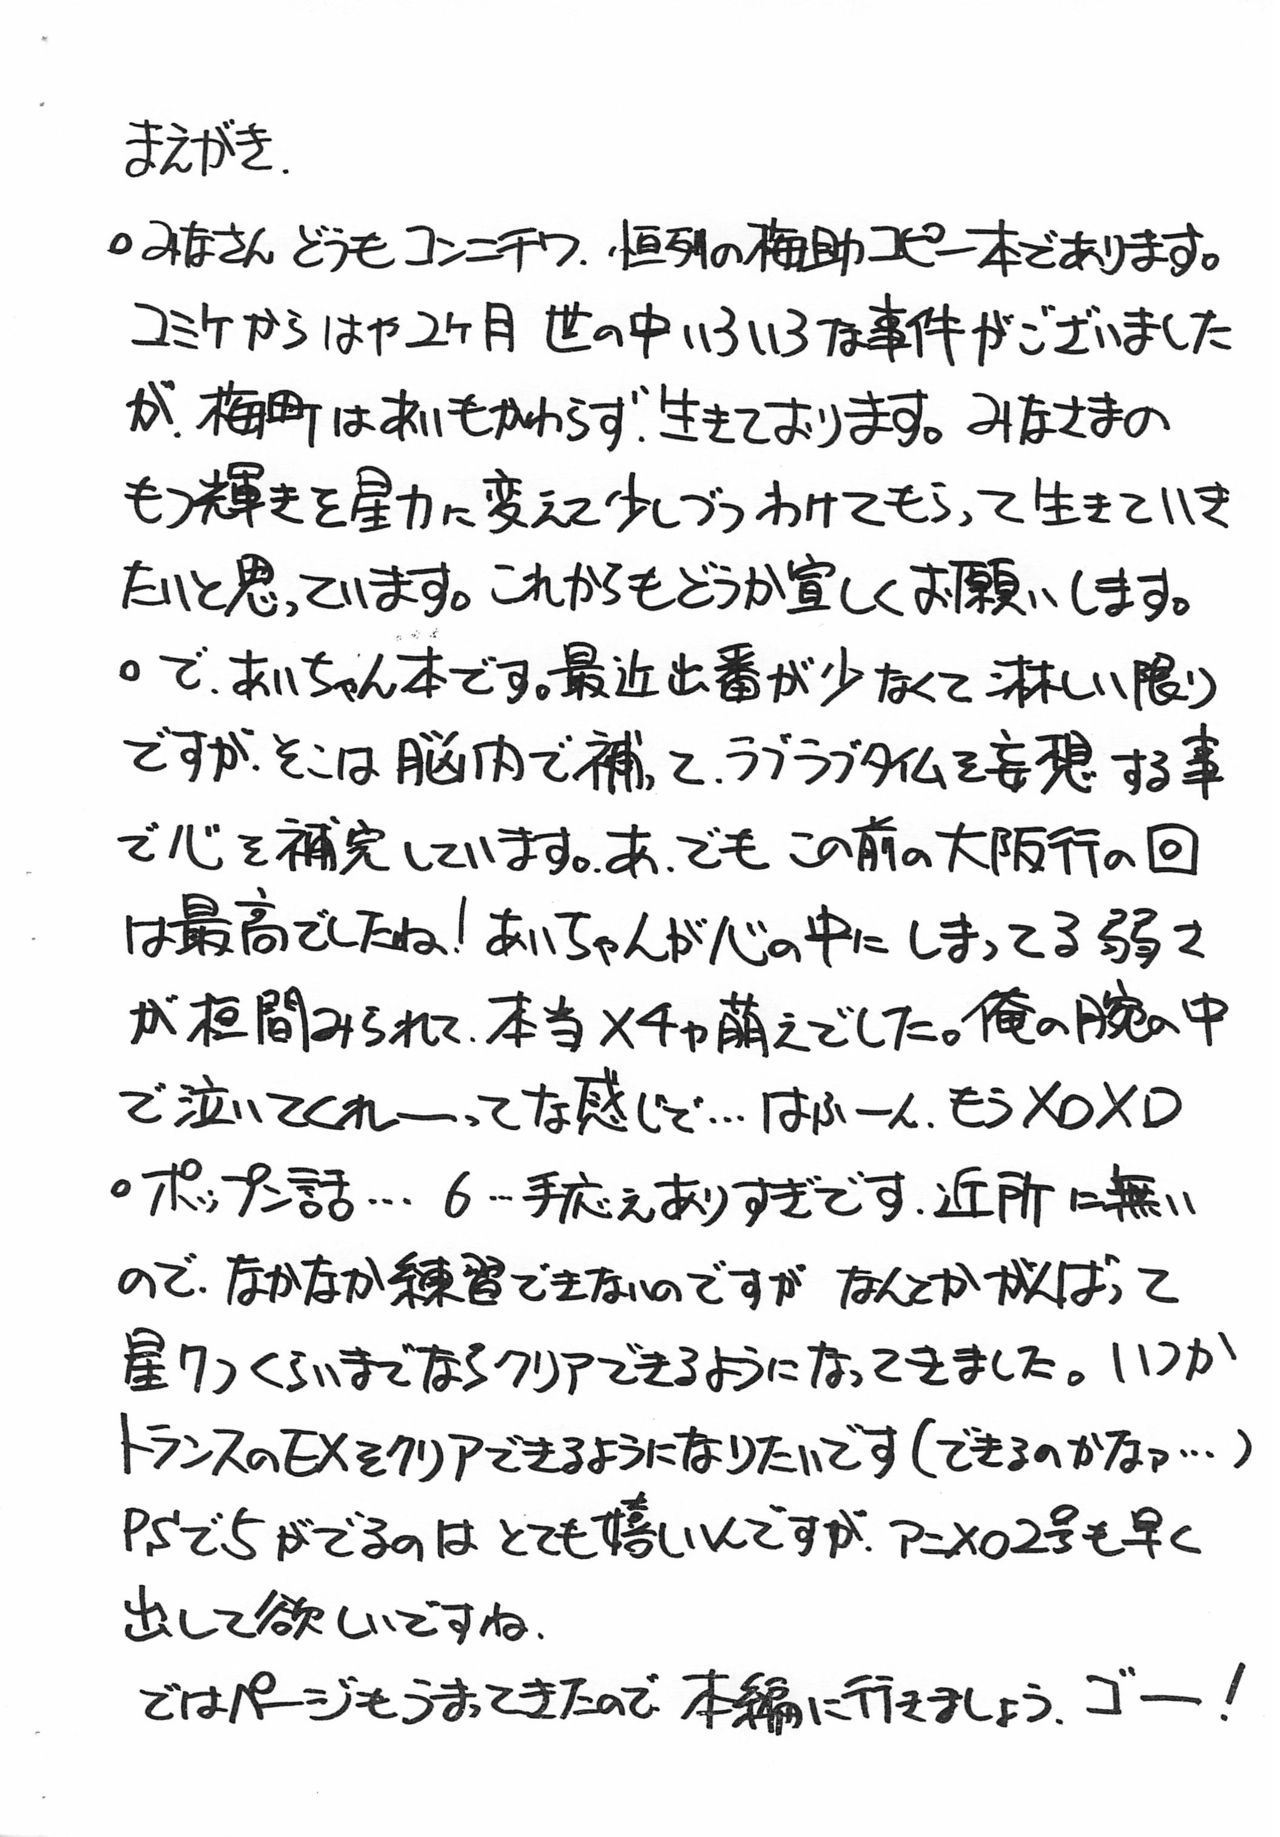 まえがき.
○みなさん どうも コンニチワ. 恒列の梅助コピー本であります。
コミケからはや2ヶ月 世の中いろいろな事件がございました
が. 梅町はあいもかわらず. 生きております。みなさまの
もつ輝きを星力に変えて少しづつわけてもらって生きていき
たいと思っています。これからもどうか宜しくお願いします。
○で. あいちゃん本です。最近出番が少なくて淋しい限り
ですが. そこは脳内で補って. ラブラブタイムを妄想する事
で心を補完しています。あ. でも この前の大阪行の回
は最高でしたね! あいちゃんが心の中にしまってる弱さ
が垣間みられて. 本当メチャ萌えでした。俺の腕の中
で泣いてくれーってな感じで… はふーん. もうメロメロ
○ポップン話… 6…手応えありすぎです. 近所に無い
ので. なかなか練習できないのですが なんとかがんばって
星7つくらいまでならクリアできるようになってきました。いつか
トランスのEXをクリアできるようになりたいです(できるのかなァ…)
PSで5がでるのは とても嬉しいんですが. アニメロ2号も早く
出して欲しいですね.
ではページもうまってきたので 本編に行きましょう. ゴー!